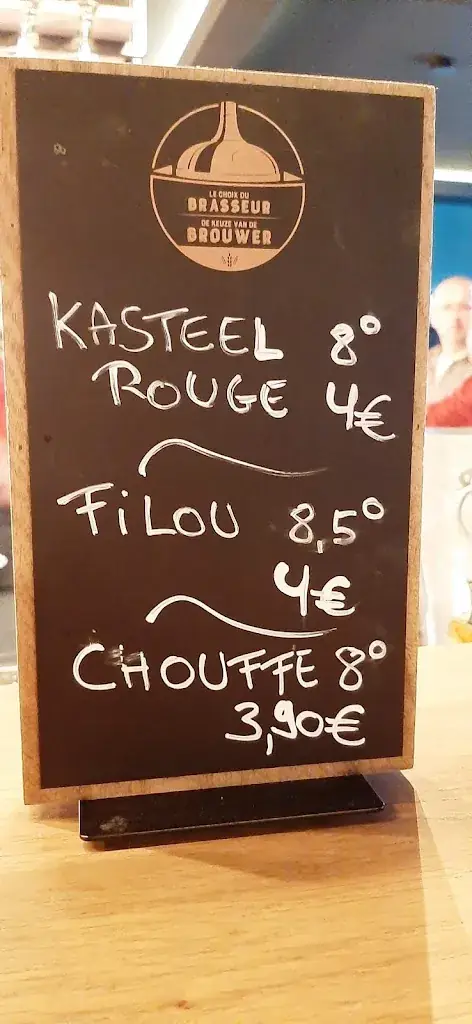 LE CHOIX DU
BRASSEUR
DE KEUZE VAN DE
BROUWER
KASTEEL 8°
ROUGE 4€
FiLOU 8,5°
4€
CHOUFFE 8°
3,90€